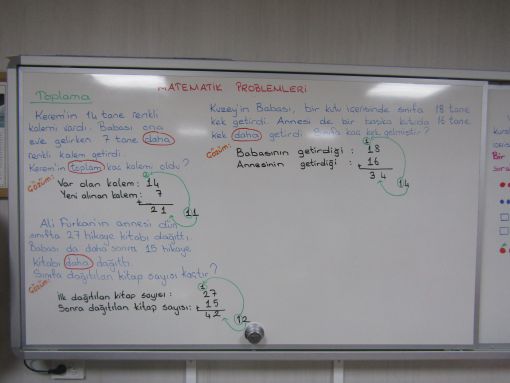 MATEMATİK PROBLEMLERİ
Toplama
Kerem'in 14 tane renkli
kalemi vardı. Babası ona
eve gelirken 7 tane daha
renkli kalem getirdi.
Kerem'in toplam kaç kalemi oldu?
Çözüm:
Var olan kalem: 14
Yeni alınan kalem: 7
+
21
11
Ali Furkan'ın annesi dün
sınıfta 27 hikaye kitabı dağıttı.
Babası da daha sonra 15 hikaye
kitabı daha dağıttı.
Sınıfa dağıtılan kitap sayısı kaçtır?
Çözüm:
1
İlk dağıtılan kitap sayısı: 27
Sonra dağıtılan kitap sayısı: + 15
42
12
Kuzey'in Babası, bir kutu içerisinde sınıfa 18 tane
kek getirdi. Annesi de bir başka kutuda 16 tane
kek daha getirdi. Sınıfa kaç kek gelmiştir?
Çözüm:
1
Babasının getirdiği: 18
Annesinin getirdiği: 16
+
34
14
Bir